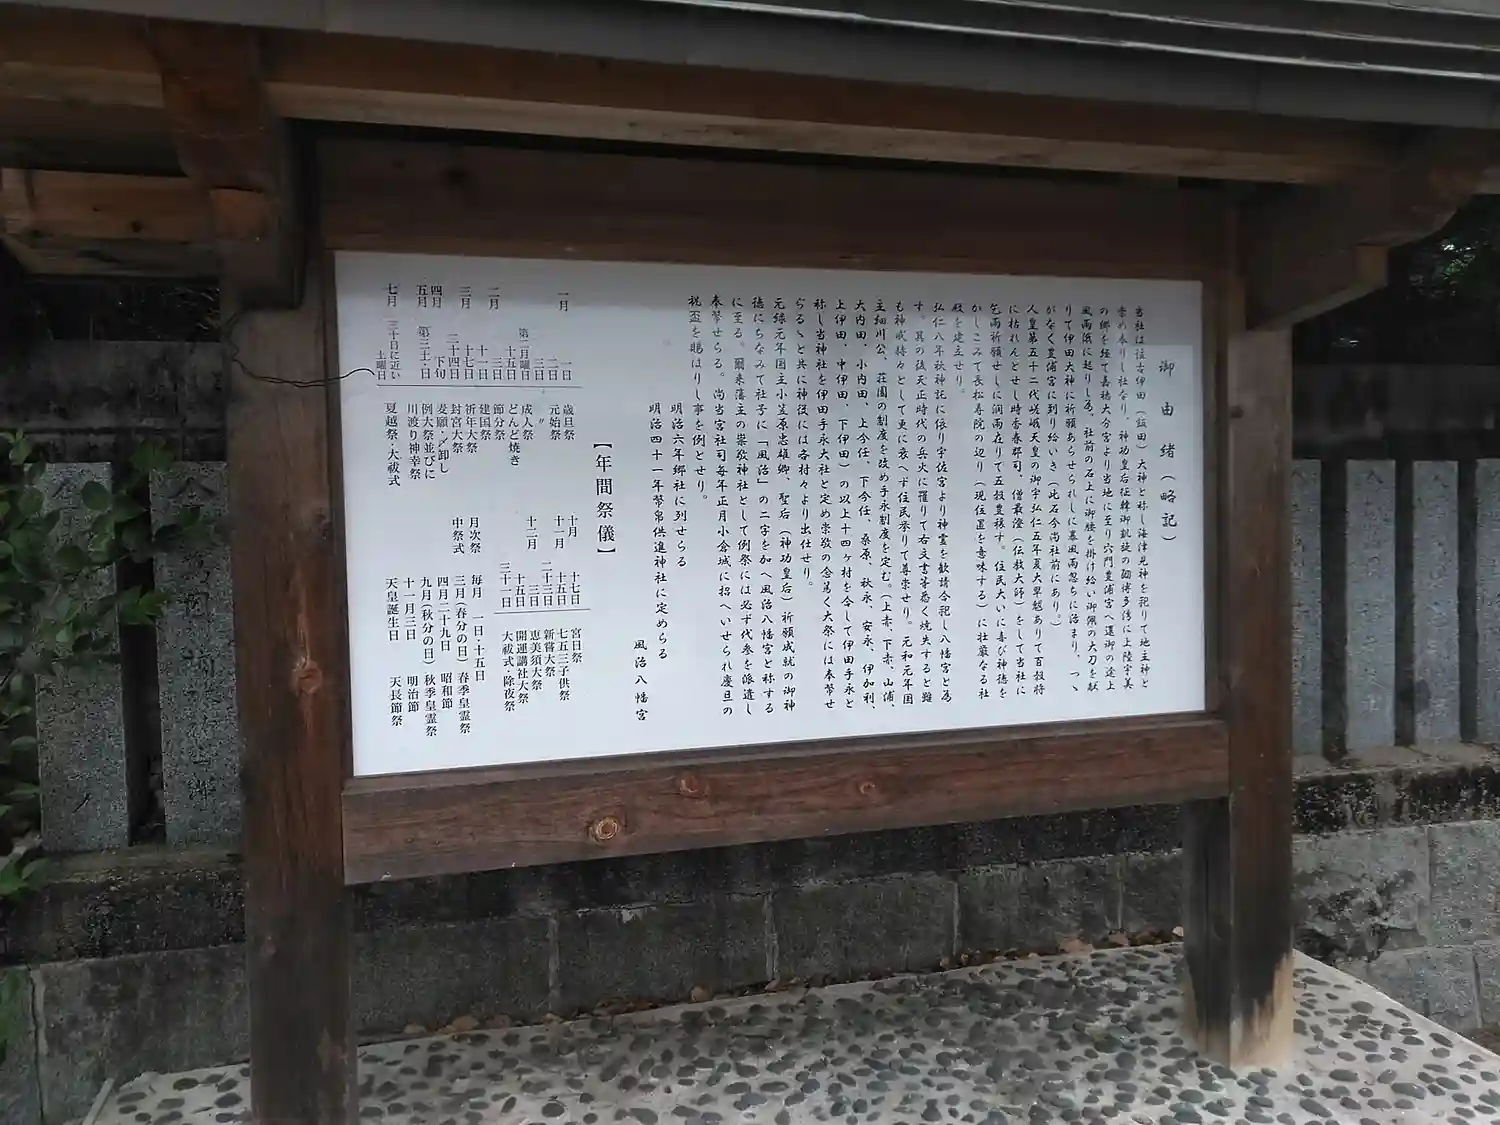 御由緒（略記）
当社は往古伊田（飯田）大神と称し海津見神を祀りて地主神と
崇め奉りし社なり、神功皇后征韓御凱旋の砌博多湾に上陸宇美
の郷を経て嘉穂大分宮より当地に至り穴門豊浦宮へ還御の途上
風雨俄に起りし為、社前の石上に御腰を掛け給い御佩の大刀を献
りて伊田大神に祈願あらせられしに暴風雨忽ちに治まり、つゝ
がなく豊浦宮に到り給いき（此石今尚社前にあり。）
人皇第五十二代嵯峨天皇の御宇弘仁五年夏大旱魃ありて百穀将
に枯れんとせし時香春郡司、僧最澄（伝教大師）をして当社に
乞雨祈願せしに潤雨在りて五穀豊穣す。住民大いに喜び神徳を
かしこみて長松寿院の辺り（現位置を意味する）に壮厳なる社
殿を建立せり。
弘仁八年秋神託に依り宇佐宮より神霊を歓請合祀し八幡宮と為
す。其の後天正時代の兵火に罹りて右文書等悉く焼失すると雖
も神威赫々として更に衰へず住民挙りて尊崇せり。元和元年国
主細川公、荘園の制度を改め手永制度を定む。（上赤、下赤、山浦、
大内田、小内田、上今任、下今任、桑原、秋永、安永、伊加利、
上伊田、中伊田、下伊田）の以上十四ヶ村を合して伊田手永と
称し当神社を伊田手永大社と定め崇敬の念篤く大祭には奉幣せ
らるゝと共に神役には各村々より出仕せり。
元緑元年国主小笠原忠雄卿、聖后（神功皇后）祈願成就の御神
徳にちなみて社子に「風治」の二字を加へ風治八幡宮と称する
に至る。爾来藩主の崇敬神社として例祭には必ず代参を派遣し
奉幣せらる。尚当宮社司毎年正月小倉城に招へいせられ慶旦の
祝盃を賜はりし事を例とせり。
明治六年郷社に列せらる
明治四十一年幣帛供進神社に定めらる
風治八幡宮
【年間祭儀】
一月 一日 歳旦祭
二日 元始祭
三日 〃
第二月曜日 成人祭
十五日 どんど焼き
二月 三日 節分祭
十一日 建国祭
十七日 祈年大祭
三月 二十四日 封宮大祭
四月 下旬 麦願・〆卸し
五月 第三土・日 例大祭並びに
川渡り神幸祭
七月 三十日に近い
土曜日 夏越祭・大祓式
十月 十七日 宮日祭
十一月 十五日 七五三子供祭
二十三日 新嘗大祭
十二月 三日 恵美須大祭
十五日 開運講社大祭
三十一日 大祓式・除夜祭
月次祭 毎月 一日・十五日
中祭式 三月（春分の日） 春季皇霊祭
四月二十九日 昭和節
九月（秋分の日） 秋季皇霊祭
十一月三日 明治節
天皇誕生日 天長節祭